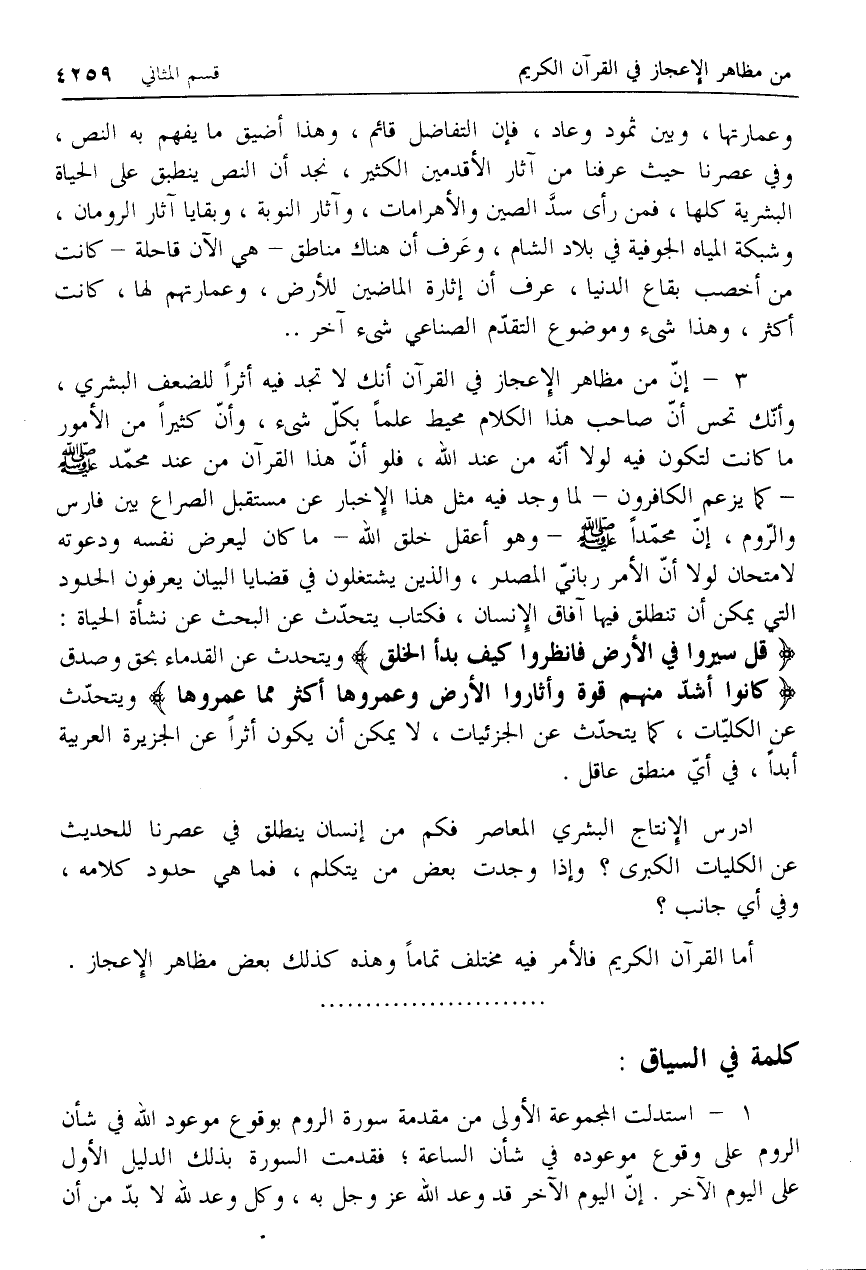 من مظاهر الإعجاز في القرآن الكريم قسم المثاني ٤٢٥٩
وعمارتها ، وبين ثمود وعاد ، فإن التفاضل قائم ، وهذا أضيق ما يفهم به النص ،
وفي عصرنا حيث عرفنا من آثار الأقدمين الكثير ، نجد أن النص ينطبق على الحياة
البشرية كلها ، فمن رأى سدَّ الصين والأهرامات ، وآثار النوبة ، وبقايا آثار الرومان ،
وشبكة المياه الجوفية في بلاد الشام ، وعَرف أن هناك مناطق – هي الآن قاحلة – كانت
من أخصب بقاع الدنيا ، عرف أن إثارة الماضين للأرض ، وعمارتهم لها ، كانت
أكثر ، وهذا شىء وموضوع التقدّم الصناعي شىء آخر ..
٣ – إنّ من مظاهر الإعجاز في القرآن أنك لا تجد فيه أثراً للضعف البشري ،
وأنّك تحس أنّ صاحب هذا الكلام محيط علماً بكلّ شىء ، وأنّ كثيراً من الأمور
ما كانت لتكون فيه لولا أنّه من عند الله ، فلو أنّ هذا القرآن من عند محمّد ﷺ
– كما يزعم الكافرون – لما وجد فيه مثل هذا الإخبار عن مستقبل الصراع بين فارس
والرّوم ، إنّ محمّداً ﷺ – وهو أعقل خلق الله – ما كان ليعرض نفسه ودعوته
لامتحان لولا أنّ الأمر ربانيّ المصدر ، والذين يشتغلون في قضايا البيان يعرفون الحدود
التي يمكن أن تنطلق فيها آفاق الإنسان ، فكتاب يتحدّث عن البحث عن نشأة الحياة :
﴿ قل سيروا في الأرض فانظروا كيف بدأ الخلق ﴾ ويتحدث عن القدماء بحق وصدق
﴿ كانوا أشدّ منهم قوة وأثاروا الأرض وعمروها أكثر مما عمروها ﴾ ويتحدّث
عن الكليّات ، كما يتحدّث عن الجزئيات ، لا يمكن أن يكون أثراً عن الجزيرة العربية
أبداً ، في أيّ منطق عاقل .
ادرس الإنتاج البشري المعاصر فكم من إنسان ينطلق في عصرنا للحديث
عن الكليات الكبرى ؟ وإذا وجدت بعض من يتكلم ، فما هي حدود كلامه ،
وفي أي جانب ؟
أما القرآن الكريم فالأمر فيه مختلف تماماً وهذه كذلك بعض مظاهر الإعجاز .
.........................
كلمة في السياق :
١ – استدلت المجموعة الأولى من مقدمة سورة الروم بوقوع موعود الله في شأن
الروم على وقوع موعوده في شأن الساعة ؛ فقدمت السورة بذلك الدليل الأول
على اليوم الآخر . إنّ اليوم الآخر قد وعد الله عز وجل به ، وكل وعد لله لا بدّ من أن